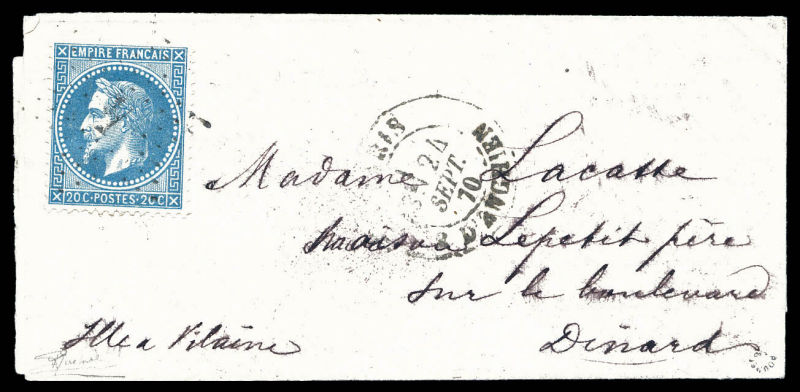 EMPIRE FRANÇAIS
20 C · POSTES · 20 C
24
SEPT.
70
D'ENGHIEN
Madame Lacasse
maison Lepetit père
sur le boulevard
Dinard
Ille a Vilaine